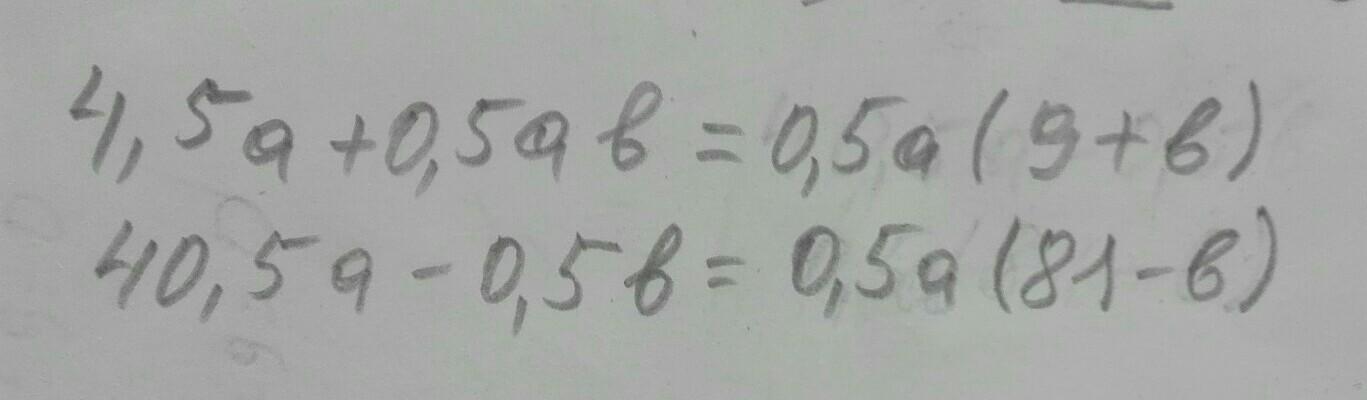 4,5a+0,5ab=0,5a(9+b)
40,5a-0,5b=0,5a(81-b)